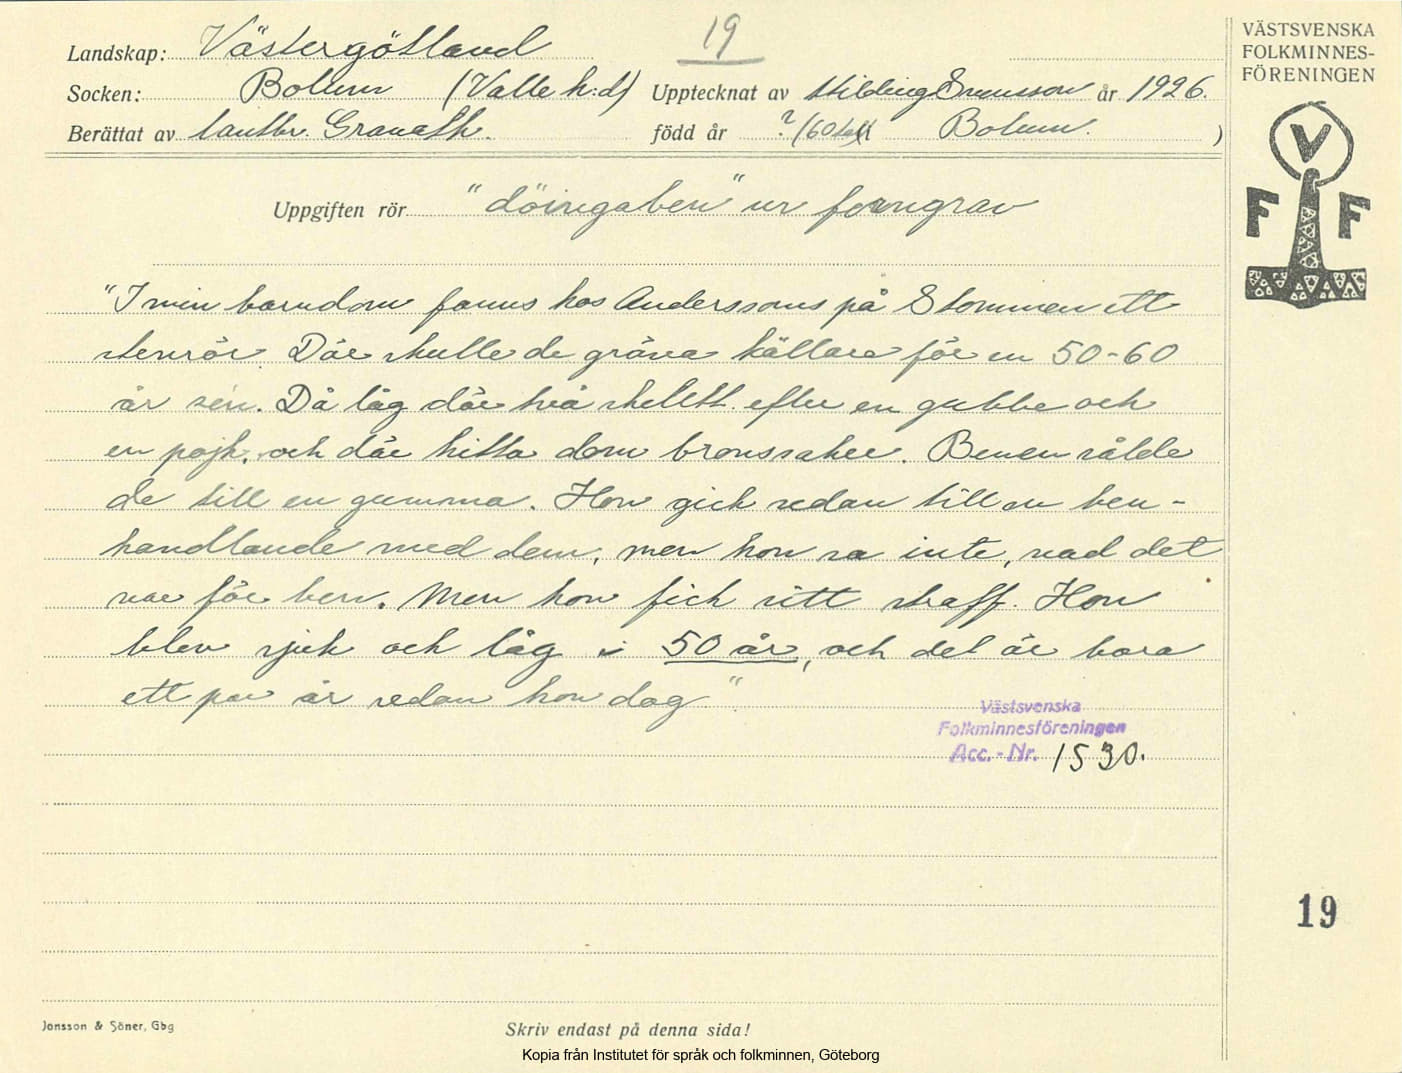 19
VÄSTSVENSKA
FOLKMINNES-
FÖRENINGEN
Landskap: Västergötland
Socken: Bolum (Valle h:d) Upptecknat av Hilding Svensson år 1926.
Berättat av lantbr. Granath. född år ? (60 tal) i Bolum. )
Uppgiften rör "döingaben" ur forngrav
V
F F
"I min barndom fanns hos Anderssons på Stommen ett
stenrör. Där skulle de gräva källare för en 50-60
år sén. Då låg där två skelett efter en gubbe och
en pojk, och där hitta dom bronssaker. Benen sålde
de till en gumma. Hon gick sedan till en ben-
handlande med dem, men hon sa inte, vad det
var för ben. Men hon fick sitt straff. Hon
blev sjuk och låg i 50 år, och det är bara
ett par år sedan hon dog"
Västsvenska
Folkminnesföreningen
Acc.-Nr. 1530.
19
Jonsson & Söner, Gbg
Skriv endast på denna sida!
Kopia från Institutet för språk och folkminnen, Göteborg